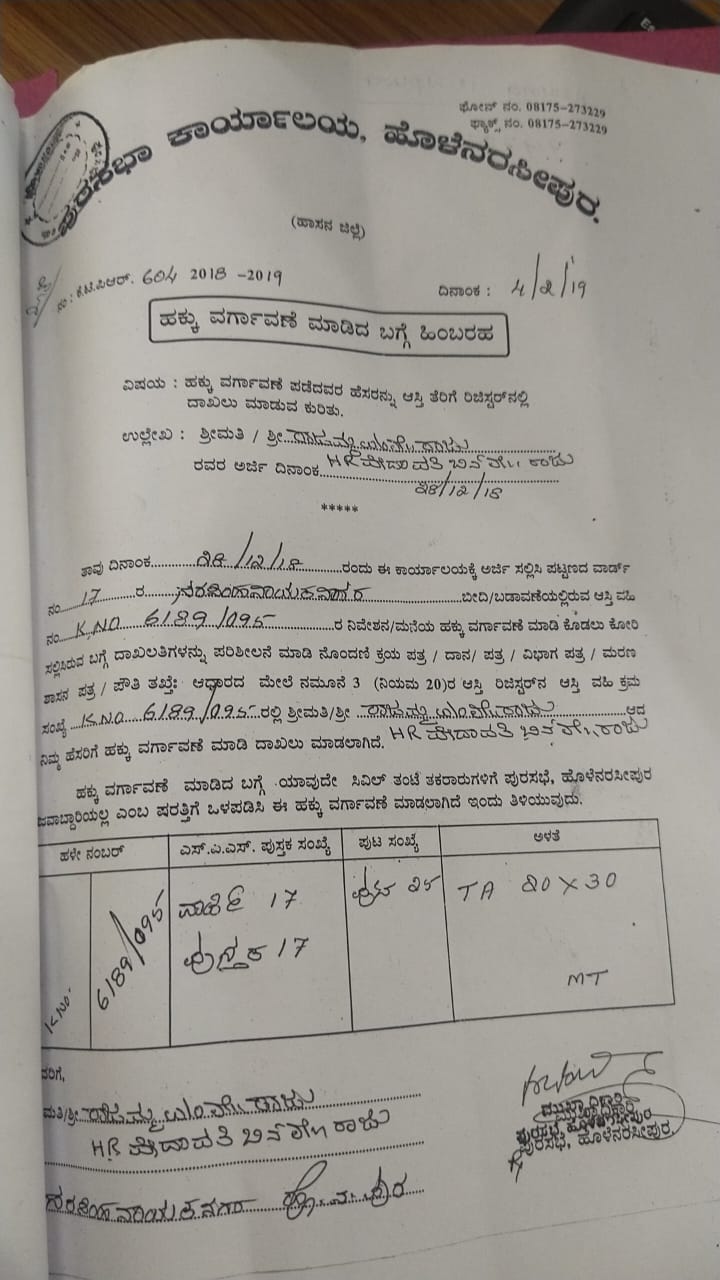 ಫೋನ್ ನಂ. 08175-273229
ಫ್ಯಾಕ್ಸ್ ನಂ. 08175-273229
ಪುರಸಭಾ ಕಾರ್ಯಾಲಯ, ಹೊಳೆನರಸೀಪುರ.
(ಹಾಸನ ಜಿಲ್ಲೆ)
ನಂ: ಕೆ.ಟಿ.ಪಿ.ಆರ್. 604 2018 -2019
ದಿನಾಂಕ : 4/2/19
ಹಕ್ಕು ವರ್ಗಾವಣೆ ಮಾಡಿದ ಬಗ್ಗೆ ಹಿಂಬರಹ
ವಿಷಯ : ಹಕ್ಕು ವರ್ಗಾವಣೆ ಪಡೆದವರ ಹೆಸರನ್ನು ಆಸ್ತಿ ತೆರಿಗೆ ರಿಜಿಸ್ಟರ್‌ನಲ್ಲಿ
ದಾಖಲು ಮಾಡುವ ಕುರಿತು.
ಉಲ್ಲೇಖ : ಶ್ರೀಮತಿ / ಶ್ರೀ ರಾಜಮ್ಮ ರಾಜು
ರವರ ಅರ್ಜಿ ದಿನಾಂಕ HR ರಾಜು
28/12/18
*****
ತಾವು ದಿನಾಂಕ 28/12/18 ರಂದು ಈ ಕಾರ್ಯಾಲಯಕ್ಕೆ ಅರ್ಜಿ ಸಲ್ಲಿಸಿ ಪಟ್ಟಣದ ವಾರ್ಡ್
ನಂ 17 ರ ನರಸಿಂಹನಾಯಕನಗರ ಬೀದಿ/ಬಡಾವಣೆಯಲ್ಲಿರುವ ಆಸ್ತಿ ವಹಿ
ನಂ K.NO 6189/095 ರ ನಿವೇಶನ/ಮನೆಯ ಹಕ್ಕು ವರ್ಗಾವಣೆ ಮಾಡಿ ಕೊಡಲು ಕೋರಿ
ಸಲ್ಲಿಸಿರುವ ಬಗ್ಗೆ ದಾಖಲತಿಗಳನ್ನು ಪರಿಶೀಲನೆ ಮಾಡಿ ನೊಂದಣಿ ಕ್ರಯ ಪತ್ರ / ದಾನ/ ಪತ್ರ / ವಿಭಾಗ ಪತ್ರ / ಮರಣ
ಶಾಸನ ಪತ್ರ / ಪೌತಿ ತಖ್ತೆ: ಆಧಾರದ ಮೇಲೆ ನಮೂನೆ 3 (ನಿಯಮ 20)ರ ಆಸ್ತಿ ರಿಜಿಸ್ಟರ್‌ನ ಆಸ್ತಿ ವಹಿ ಕ್ರಮ
ಸಂಖ್ಯೆ KNO 6189/095 ರಲ್ಲಿ ಶ್ರೀಮತಿ/ಶ್ರೀ ರಾಜಮ್ಮ ರಾಜು ಆದ
ನಿಮ್ಮ ಹೆಸರಿಗೆ ಹಕ್ಕು ವರ್ಗಾವಣೆ ಮಾಡಿ ದಾಖಲು ಮಾಡಲಾಗಿದೆ. HR ರಾಜು
ಹಕ್ಕು ವರ್ಗಾವಣೆ ಮಾಡಿದ ಬಗ್ಗೆ ಯಾವುದೇ ಸಿವಿಲ್ ತಂಟೆ ತಕರಾರುಗಳಿಗೆ ಪುರಸಭೆ, ಹೊಳೆನರಸೀಪುರ
ಜವಾಬ್ದಾರಿಯಲ್ಲ ಎಂಬ ಷರತ್ತಿಗೆ ಒಳಪಡಿಸಿ ಈ ಹಕ್ಕು ವರ್ಗಾವಣೆ ಮಾಡಲಾಗಿದೆ ಇಂದು ತಿಳಿಯುವುದು.
ಹಳೇ ನಂಬರ್ ಎಸ್.ಎ.ಎಸ್. ಪುಸ್ತಕ ಸಂಖ್ಯೆ ಪುಟ ಸಂಖ್ಯೆ ಅಳತೆ
K.NO. 6189/095 ವಾರ್ಡ್ 17 ಪುಟ 25 TA 20X30
ಪುಸ್ತಕ 17
MT
ರಿಗೆ,
ಮತಿ/ಶ್ರೀ ರಾಜಮ್ಮ ರಾಜು
HR ರಾಜು
ನರಸಿಂಹನಾಯಕನಗರ ಹೊ.ನ.ಪುರ
ಮುಖ್ಯಾಧಿಕಾರಿ
ಪುರಸಭೆ, ಹೊಳೆನರಸೀಪುರ.